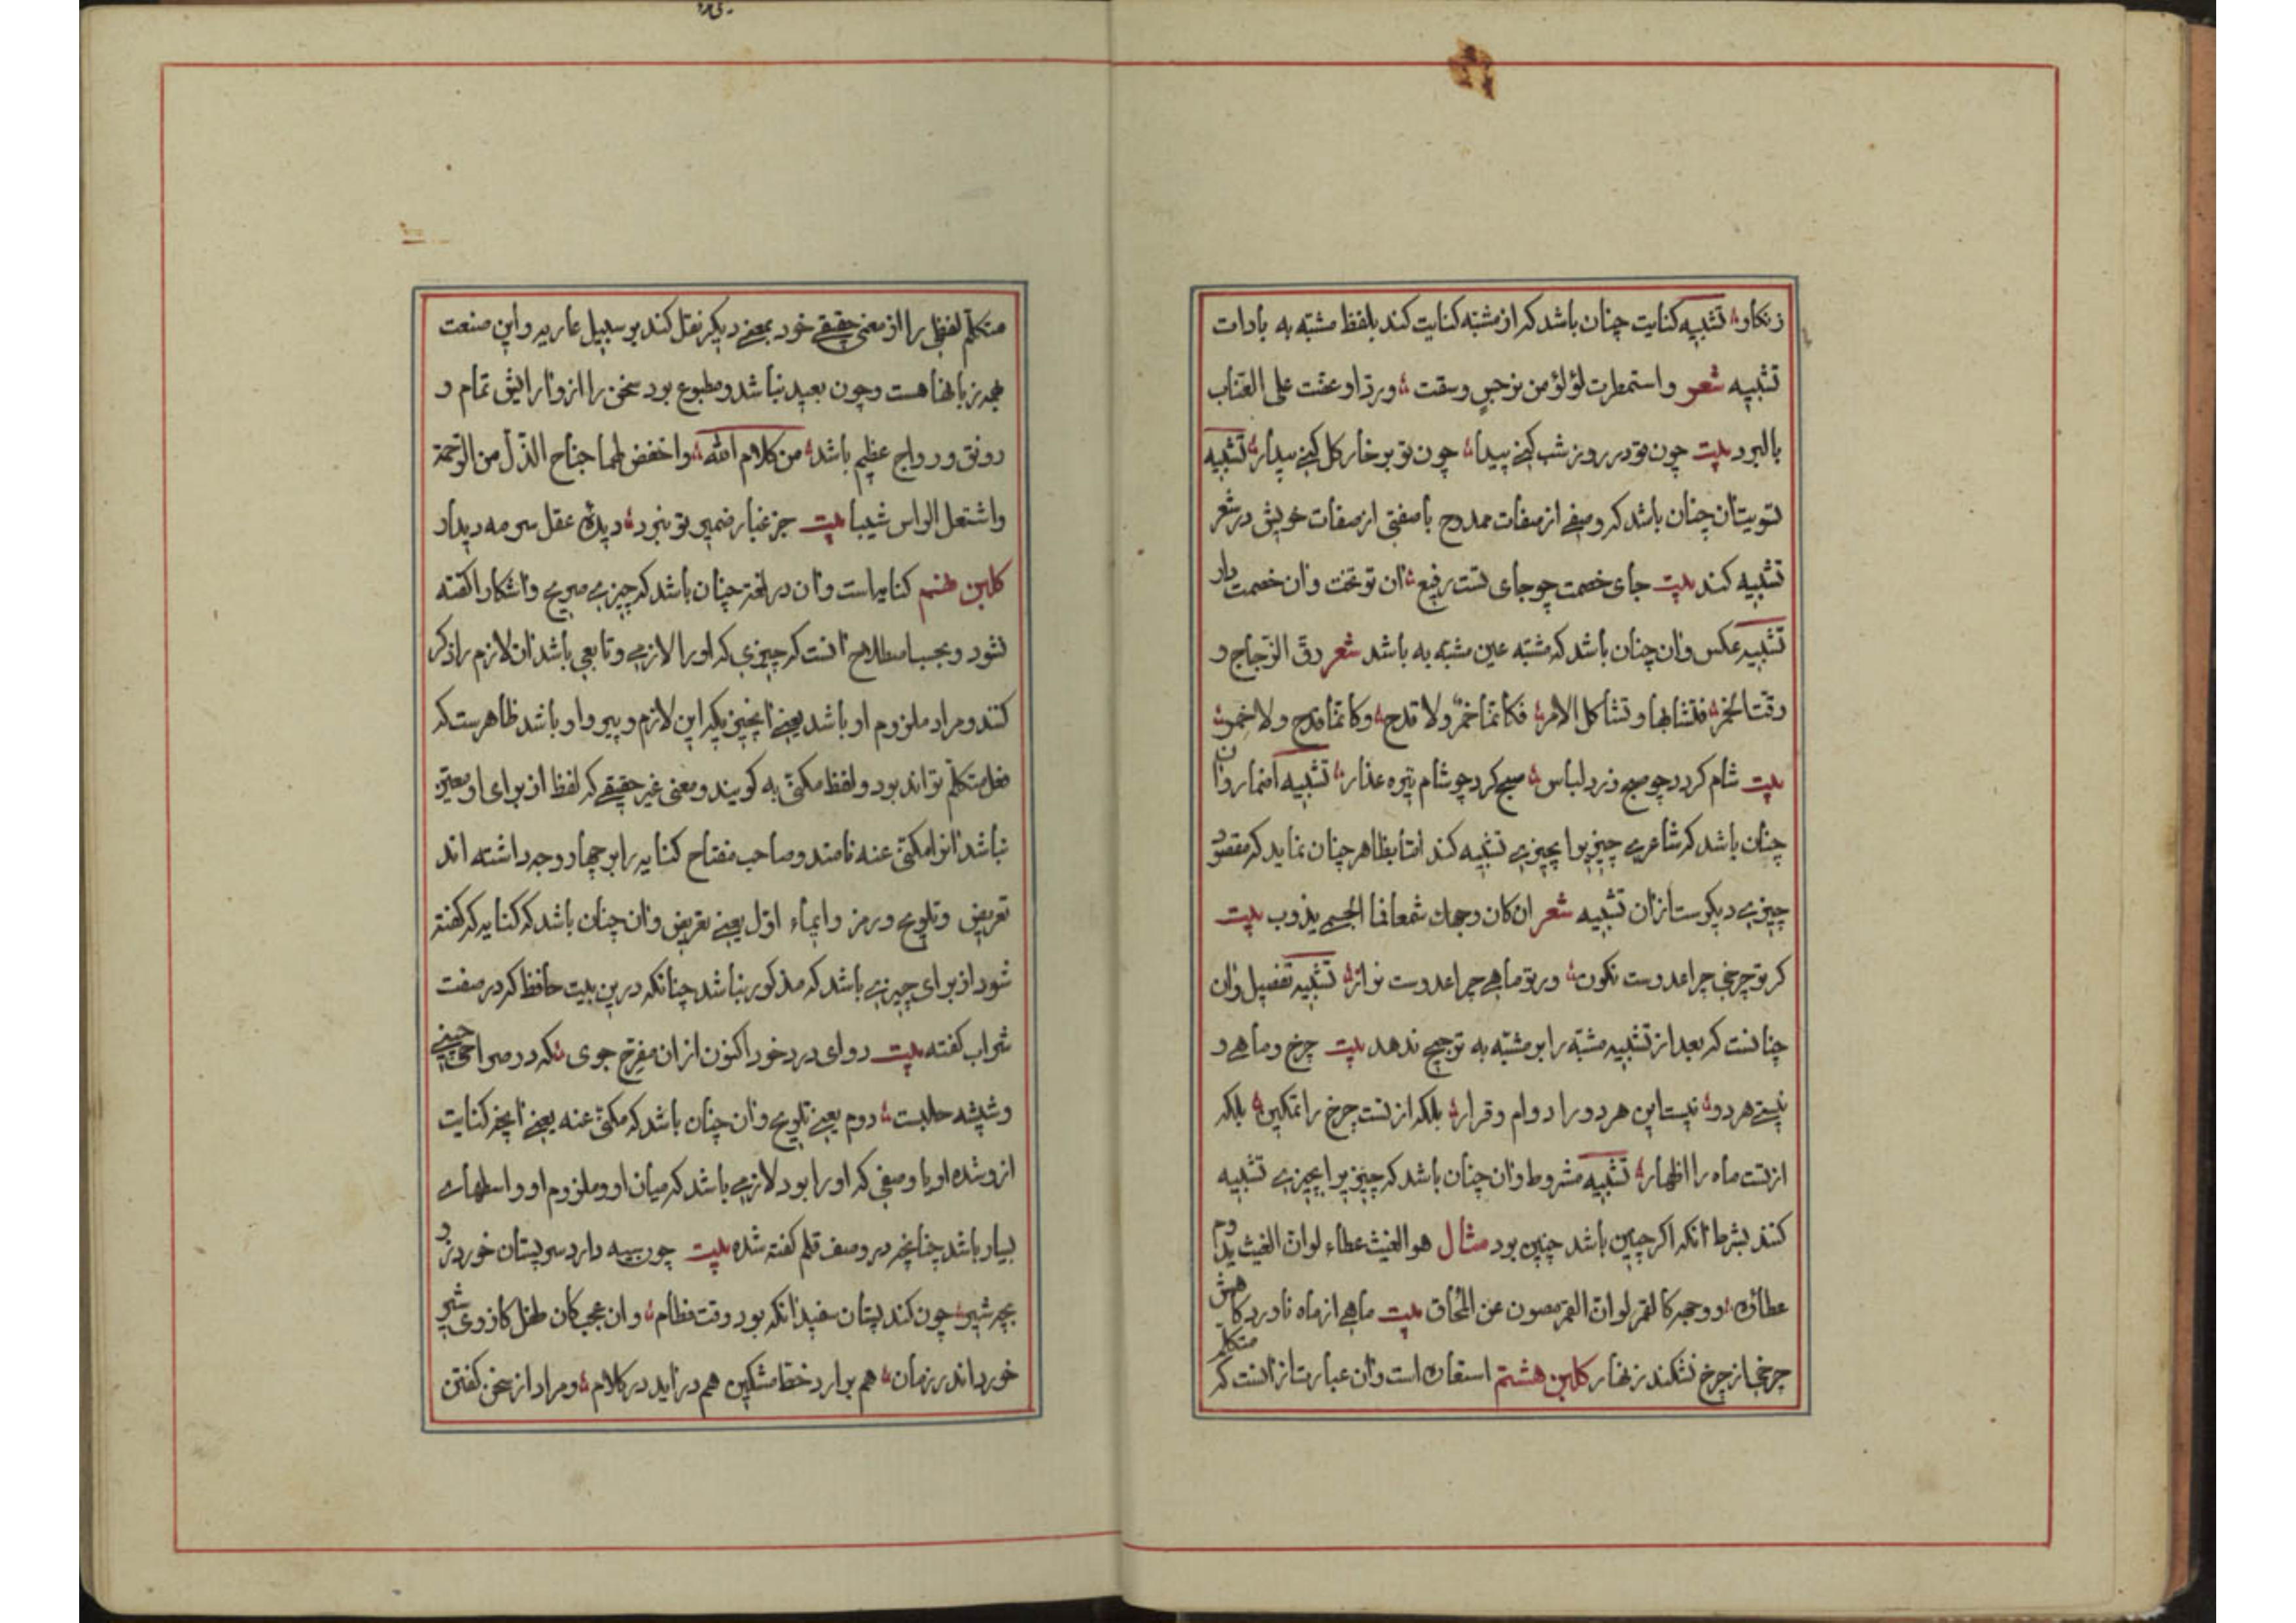 زنکار تشبیه کنایت چنان باشد که از مشبه کنایت کند بلفظ مشبه به بادات
تشبیه شعر و استمطرت لؤلؤ من نرجس وسقت وردا و عضت علی العناب
بالبرد بیت چون تو در روز شب کنی پیدا چون تو بر خار کل کنی بیدار تشبیه
تسویت آن چنان باشد که وصفی از صفات ممدوح با صفتی از صفات خویش در شعر
تشبیه کند بیت جای خصمت چو جای تست رفیع آن تو تخت وان خصمت دار
تشبیه عکس وان چنان باشد که مشبه عین مشبه به باشد شعر رق الزجاج و
رقت الخمر فتشابها و تشاکل الامر فکانما خمر ولا قدح وکانما قدح ولا خمر
بیت شام کردد چو صبح زرد لباس صبح کردد چو شام تیره عذار تشبیه اضمار وان
چنان باشد که شاعری چیزیرا بچیزی تشبیه کند اما بظاهر چنان نماید که مقصود
چیزی دیکرست ازان تشبیه شعر ان کان وجهک شمعا فما لجسمی یذوب بیت
کر تو چرخی چرا عدوست نکون ور تو ماهی چرا عدوست نزار تشبیه تفصیل وان
چنانست که بعد از تشبیه مشبه را بر مشبه به ترجیح ندهد بیت چرخ و ماهی و
نیستی هر دو نیست این هر دو را دوام و قرار بلکه از تست چرخ را تمکین بلکه
از تست ماه را اظهار تشبیه مشروط وان چنان باشد که چیزیرا بچیزی تشبیه
کنند بشرط آنکه اکر چنین باشد چنین بود مثال هو الغیث عطاء لو ان الغیث یدوم
عطاؤه و وجهه کالقمر لو ان القمر مصون عن المحاق بیت ماهی از ماه ناورد کاهش
چرخی از چرخ نشکند زنهار کلبن هشتم استعاره است وان عبارت از انست که متکلم
متکلم لفظی را از معنی حقیقی خود بمعنی دیکر نقل کند بر سبیل عاریه و این صنعت
بهمه زبانها هست و چون بعید نباشد و مطبوع بود سخن را ازو آرایش تمام و
رونق و رواج عظیم باشد من کلام الله واخفض لهما جناح الذل من الرحمة
واشتعل الراس شیبا بیت جز غبار ضمیر تو نبرد دیدۀ عقل سرمه دیدار
کلبن نهم کنایه است وان در لغت چنان باشد که چیزی صریح و آشکارا کفته
نشود و بحسب اصطلاح آنست که چیزی که او را لازمی و تابعی باشد ان لازم را ذکر
کنند و مراد ملزوم او باشد یعنی آنچیز یکه این لازم و پیرو او باشد ظاهرست که
فعل متکلم تواند بود و لفظ مکنی به کویند و معنی غیر حقیقی که لفظ از برای او معین
نباشد آنرا مکنی عنه نامند و صاحب مفتاح کنایه را بر چهار وجه داشته اند
تعریض و تلویح و رمز و ایماء اول یعنی تعریض وان چنان باشد که کنایه که کفته
شود از برای چیزی باشد که مذکور نباشد چنانکه درین بیت حافظ که در صفت
شراب کفته بیت دوای درد خود اکنون ازان مفرح جوی که در صراحی چینی
و شیشه حلبست دوم یعنی تلویح وان چنان باشد که مکنی عنه یعنی آنچه کنایت
ازو شده او یا وصفی که او را بود لازمی باشد که میان او و ملزوم او واسطهای
بسیار باشد چنانچه در وصف قلم کفته شده بیت چون سیه دارد سر پستان خورد زو
بچه شیر چون کند پستان سفید آنکه بود وقت فطام وان عجب کان طفل کاز وی شیر
خورد اندر زمان هم برارد خط مشکین هم دراید در کلام و مراد از سخن کفتن